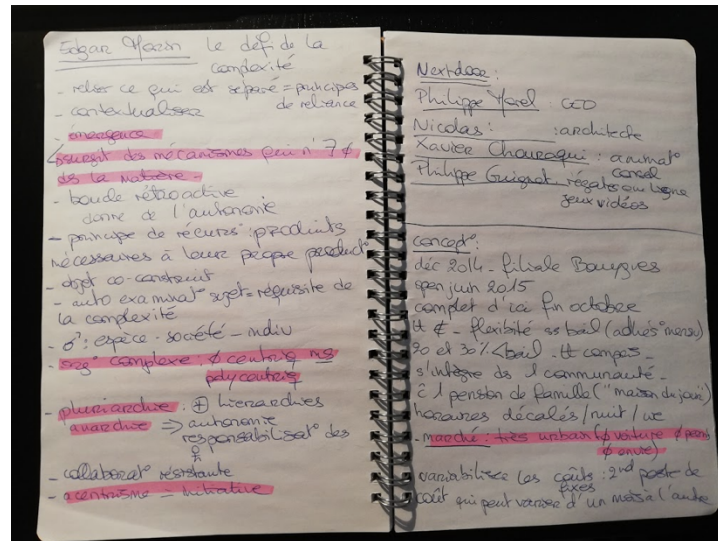 Edgar Morin le défi de la
complexité
- relier ce qui est séparé = principes
de reliance
- contextualiser
- émergence
surgit des mécanismes qui n' 7 ¢
ds la matière.
- boucle rétroactive
donne de l'autonomie
- principe de récurs° : produits
nécessaires à leur propre product°
- objet co-construit
- auto examinat° sujet = réquisite de
la complexité
- ♂ : espèce - société - indiv
- org° complexe : ¢ centriq ms
polycentriq
- pluriarchie : ⊕ hierarchies
anarchie => autonomie
responsabilisat° des
- collaborat° résistante
- acentrisme = initiative
Nextdoor :
Philippe Morel : CEO
Nicolas : : architecte
Xavier Chouraqui : animat°
conseil
Philippe Guignot, régates en ligne
jeux vidéos
concept° :
déc 2014 - filiale Bouygues
open juin 2015
complet d'ici fin octobre
tt ¢ - flexibilité ss bail (adhés° mensu)
20 et 30% < bail - tt compris -
s'intègre ds 1 communauté -
c 1 pension de famille ("maison de joie")
horaires décalés / nuit / we
- marché : très urbain (¢ voiture ¢ perm)
¢ envie)
variabiliser les coûts : 2nd poste de
fixes
coût qui peut varier d'un mois à l'autre